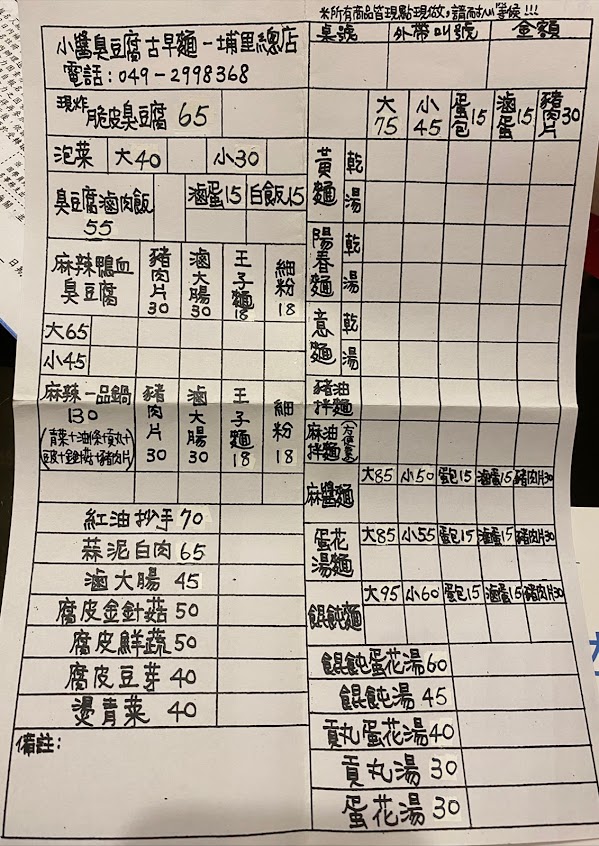 *所有商品皆現點現做,請耐心等候!!!
小醬臭豆腐古早麵-埔里總店
電話:049-2998368
桌號 外帶叫號 金額
現炸脆皮臭豆腐 65
泡菜 大40 小30
臭豆腐滷肉飯 55 滷蛋15 白飯15
麻辣鴨血臭豆腐 豬肉片30 滷大腸30 王子麵18 細粉18
大65
小45
麻辣一品鍋 130 豬肉片30 滷大腸30 王子麵18 細粉18
紅油抄手 70
蒜泥白肉 65
滷大腸 45
腐皮金針菇 50
腐皮鮮蔬 50
腐皮豆芽 40
燙青菜 40
備註:
大75 小45 蛋包15 滷蛋15 豬肉片30
黃麵 乾 湯
陽春麵 乾 湯
意麵 乾 湯
豬油拌麵
麻油拌麵
麻醬麵 大85 小50 蛋包15 滷蛋15 豬肉片30
蛋花湯麵 大85 小55 蛋包15 滷蛋15 豬肉片30
餛飩麵 大95 小60 蛋包15 滷蛋15 豬肉片30
餛飩蛋花湯 60
餛飩湯 45
貢丸蛋花湯 40
貢丸湯 30
蛋花湯 30